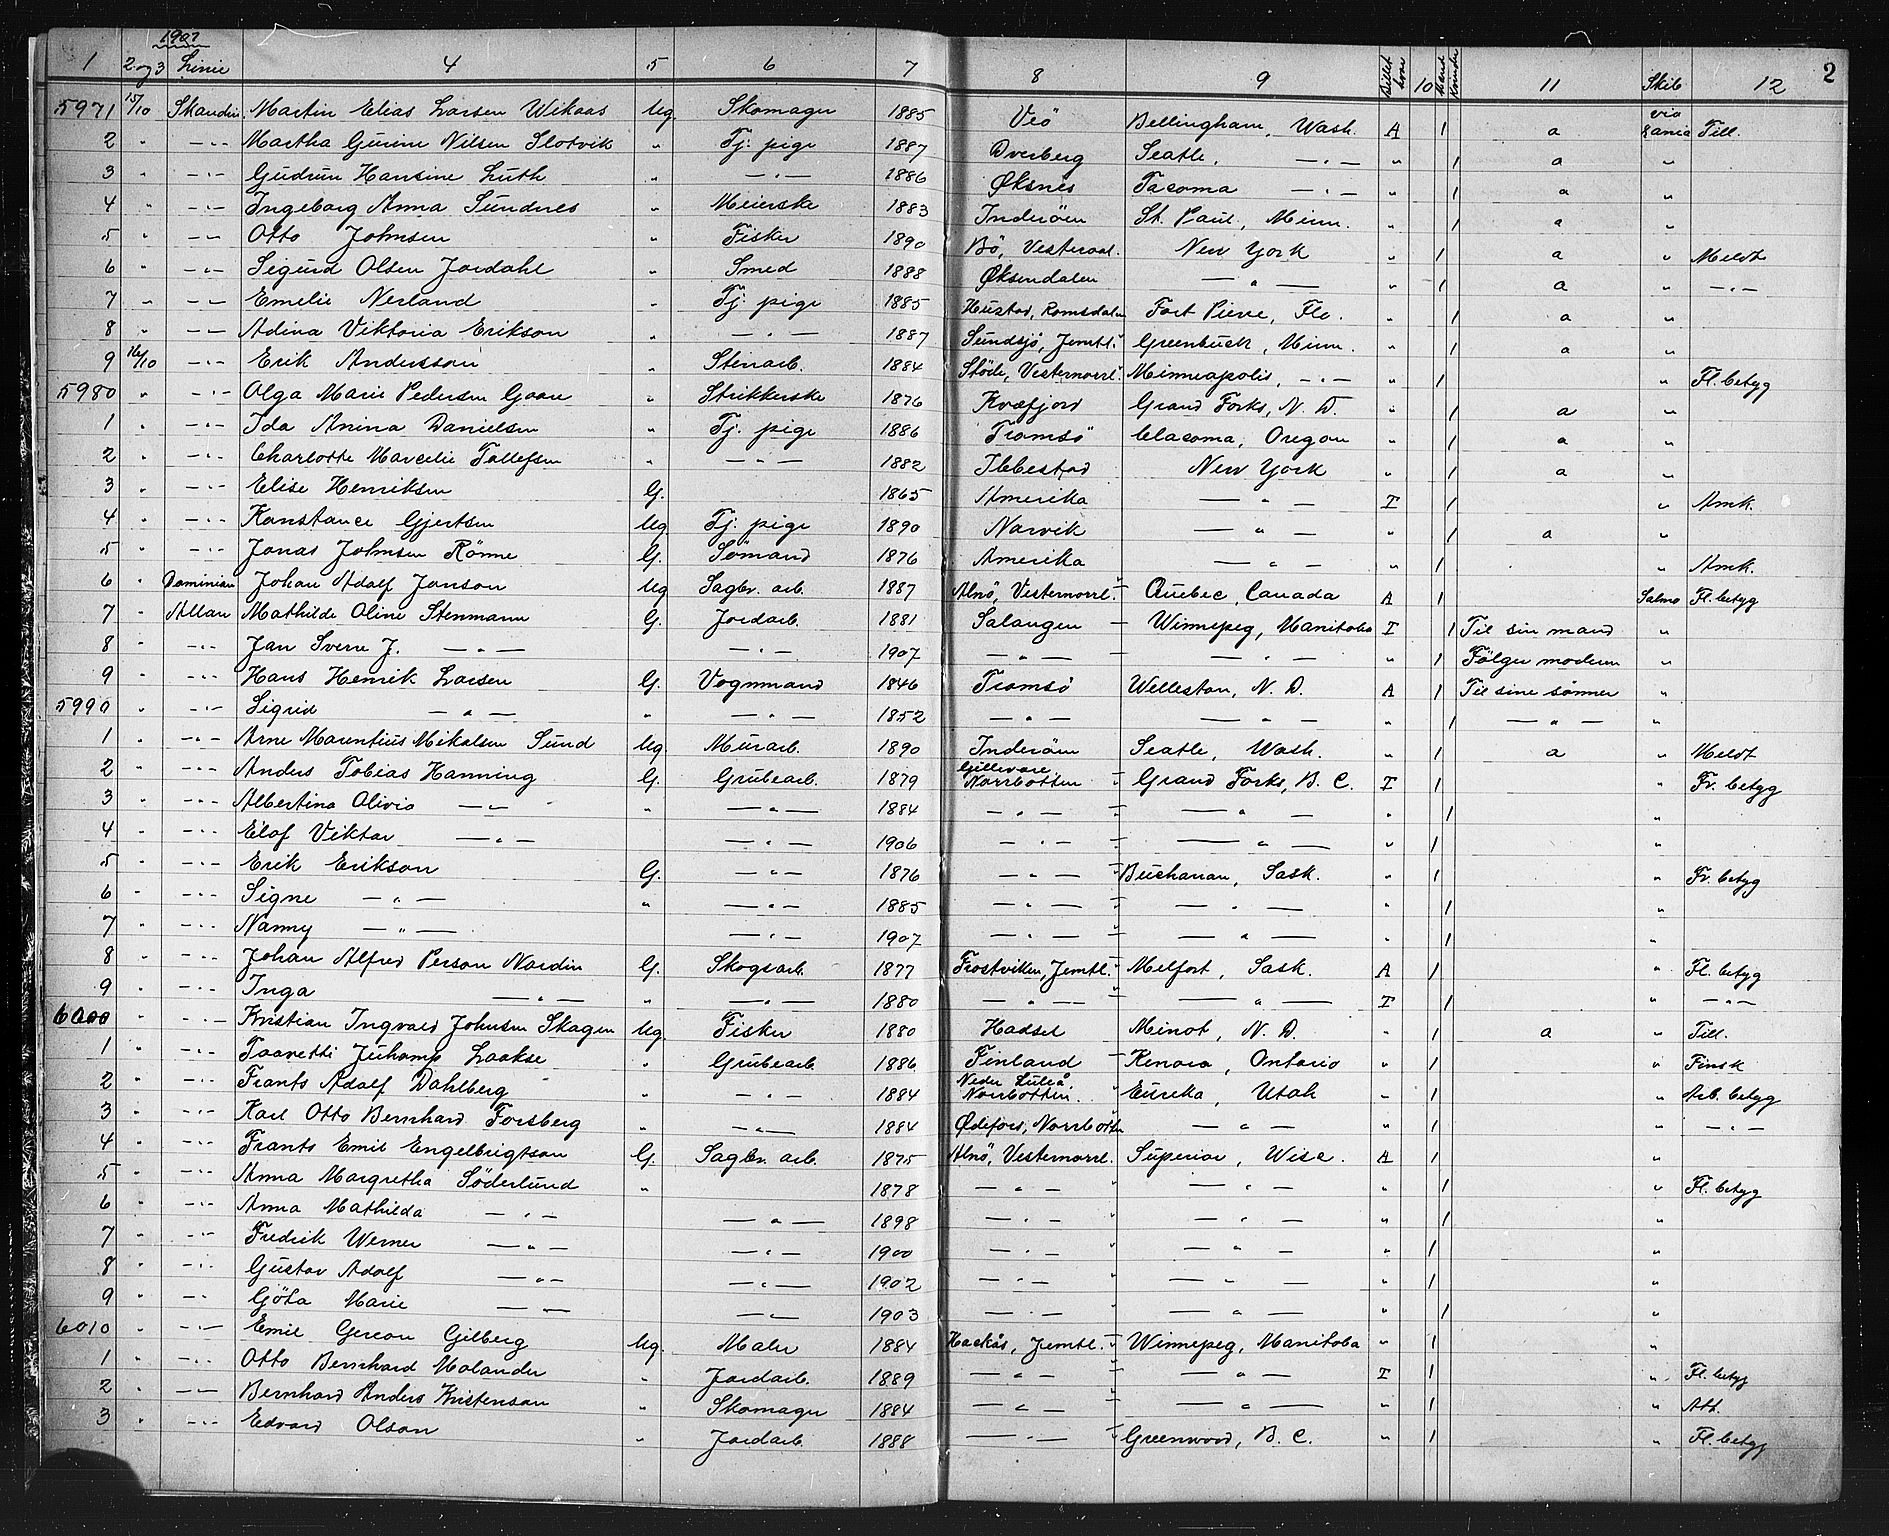 1907
1 2 og 3 Linie 4 5 6 7 8 9 Billet hvor 10 Mand Kvinder 11 Skib 12 2
5971 15/10 Skandin. Martin Elias Larsen Wikaas Ug. Skomager 1885 Veö Bellingham, Wash. A 1 a via Till.
2 " -"- Martha Gurine Nilsen Slotvik " Tj. pige 1887 Dverberg Seatle, -"- " 1 a "
3 " -"- Gudrun Hansine Luth " -"- 1886 Øksnes Tacoma -"- " 1 a "
4 " -"- Ingeborg Anna Sundnes " Meierske 1883 Inderöen St. Paul, Minn. " 1 a "
5 " -"- Otto Johnsen " Fisker 1890 Bö, Vesteraal. New York " 1 a " Meldt
6 " -"- Sigurd Olsen Jordahl " Smed 1888 Øksendalen -"- " 1 a " -"-
7 " -"- Emelie Nerland " Tj. pige 1885 Hustad, Romsdalen Fort Pierre, Flo. " 1 a "
8 " -"- Adina Viktoria Erikson " -"- 1887 Sundsjö, Jemtl. Greenbuch, Minn. " 1 a "
9 16/10 -"- Erik Andersson " Stenarb. 1884 Stöde, Vesternorrl. Minneapolis, -"- " 1 " Fl. betyg
5980 " -"- Olga Marie Pedersen Gaare " Strikkerske 1876 Kvæfjord Grand Forks, N. D. " 1 a "
1 " -"- Ida Anina Danielsen " Tj. pige 1886 Tromsö Clacoma, Oregon " 1 a "
2 " -"- Charlotte Marcelie Tollefsen " -"- 1882 Ibbestad New York " 1 a "
3 " -"- Elise Henriksen G. 1865 Amerika -"- I 1 " Amk.
4 " -"- Konstance Gjertsen Ug Tj. pige 1890 Narvik -"- " 1 a "
5 " -"- Jonas Johnsen Rönne G. Sömand 1876 Amerika -"- " 1 " Amk.
6 " Dominian Johan Adolf Jonson Ug Sagbr. arb. 1887 Alnö, Vesternorrl. Quebec, Canada A 1 Salmo Fl. betyg
7 " Allan Mathilde Oline Stenmann G. Jordarb. 1881 Salangen Winnepeg, Manitoba I 1 Til sin mand "
8 " -"- Jan Sverre J. -"- -"- 1907 -"- -"- " 1 Fölger moderen "
9 " -"- Hans Henrik Larsen G. Vognmand 1846 Tromsö Welleston, N. D. A 1 Til sine sönner "
5990 " -"- Sigrid -"- " -"- 1852 -"- -"- " 1 -"- "
1 " -"- Arne Marentius Mikalsen Sund Ug Murarb. 1890 Inderöen Seatle, Wash. " 1 a " Meldt
2 " -"- Anders Tobias Hanning G. Grubearb. 1879 Gellevare Norrbotten " Grand Forks, B. C. I 1 " Fr. betyg
3 " -"- Albertina Olivia -"- " -"- 1884 -"- " -"- " 1 "
4 " -"- Elof Viktor -"- -"- 1906 -"- -"- " 1 "
5 " -"- Erik Erikson G. -"- 1876 -"- Buchanan, Sask. " 1 " Fr. betyg
6 " -"- Signe -"- " -"- 1885 -"- -"- " 1 "
7 " -"- Nanny -"- -"- 1907 -"- -"- " 1 "
8 " -"- Johan Alfred Person Nordin G. Skogsarb. 1877 Frostviken, Jemtl. Melfort, Sask. A 1 " Fl. betyg
9 " -"- Inga -"- " -"- 1880 -"- -"- I 1 " -"-
6000 " -"- Kristian Ingvald Johnsen Skagen Ug. Fisker 1880 Hadsel Minot, N. D. " 1 a " Till.
1 " -"- Taavetti Juhamp Laakse " Grubearb 1886 Finland Kenora, Ontario " 1 " Finsk
2 " -"- Frants Adolf Dahlberg " -"- 1884 Neder Luleå. Norrbotten. " Eureka, Utah " 1 " Arb. betyg
3 " -"- Karl Otto Bernhard Forsberg " -"- 1884 Ødefors, Norrbotten -"- " 1 " -"-
4 " -"- Frants Emil Engelbrigtson G. Sagbr. arb. 1875 Alnö, Vesternorrl. Superior, Wisc. A 1 "
5 " -"- Anna Margretha Söderlund " 1878 -"- " -"- " 1 " Fl. betyg
6 " -"- Anna Mathilda -"- -"- 1898 -"- " -"- " 1 "
7 " -"- Fredrik Werner -"- -"- 1900 -"- " -"- " 1 "
8 " -"- Gustav Adolf -"- -"- 1902 -"- " -"- " 1 "
9 " -"- Göta Marie -"- -"- 1903 -"- " -"- " 1 "
6010 " -"- Emil Gereon Gilberg Ug. Maler 1884 Hackås, Jemtl. " Winnepeg, Manitoba " 1 "
1 " -"- Otto Bernhard Molander " Jordarb. 1889 -"- " -"- I 1 " Fl. betyg
2 " -"- Bernhard Anders Kristenson " Skomager 1884 -"- " -"- " 1 " Att.
3 " -"- Edvard Olson " Jordarb. 1888 -"- Greenwood, B. C. " 1 " Fl. betyg